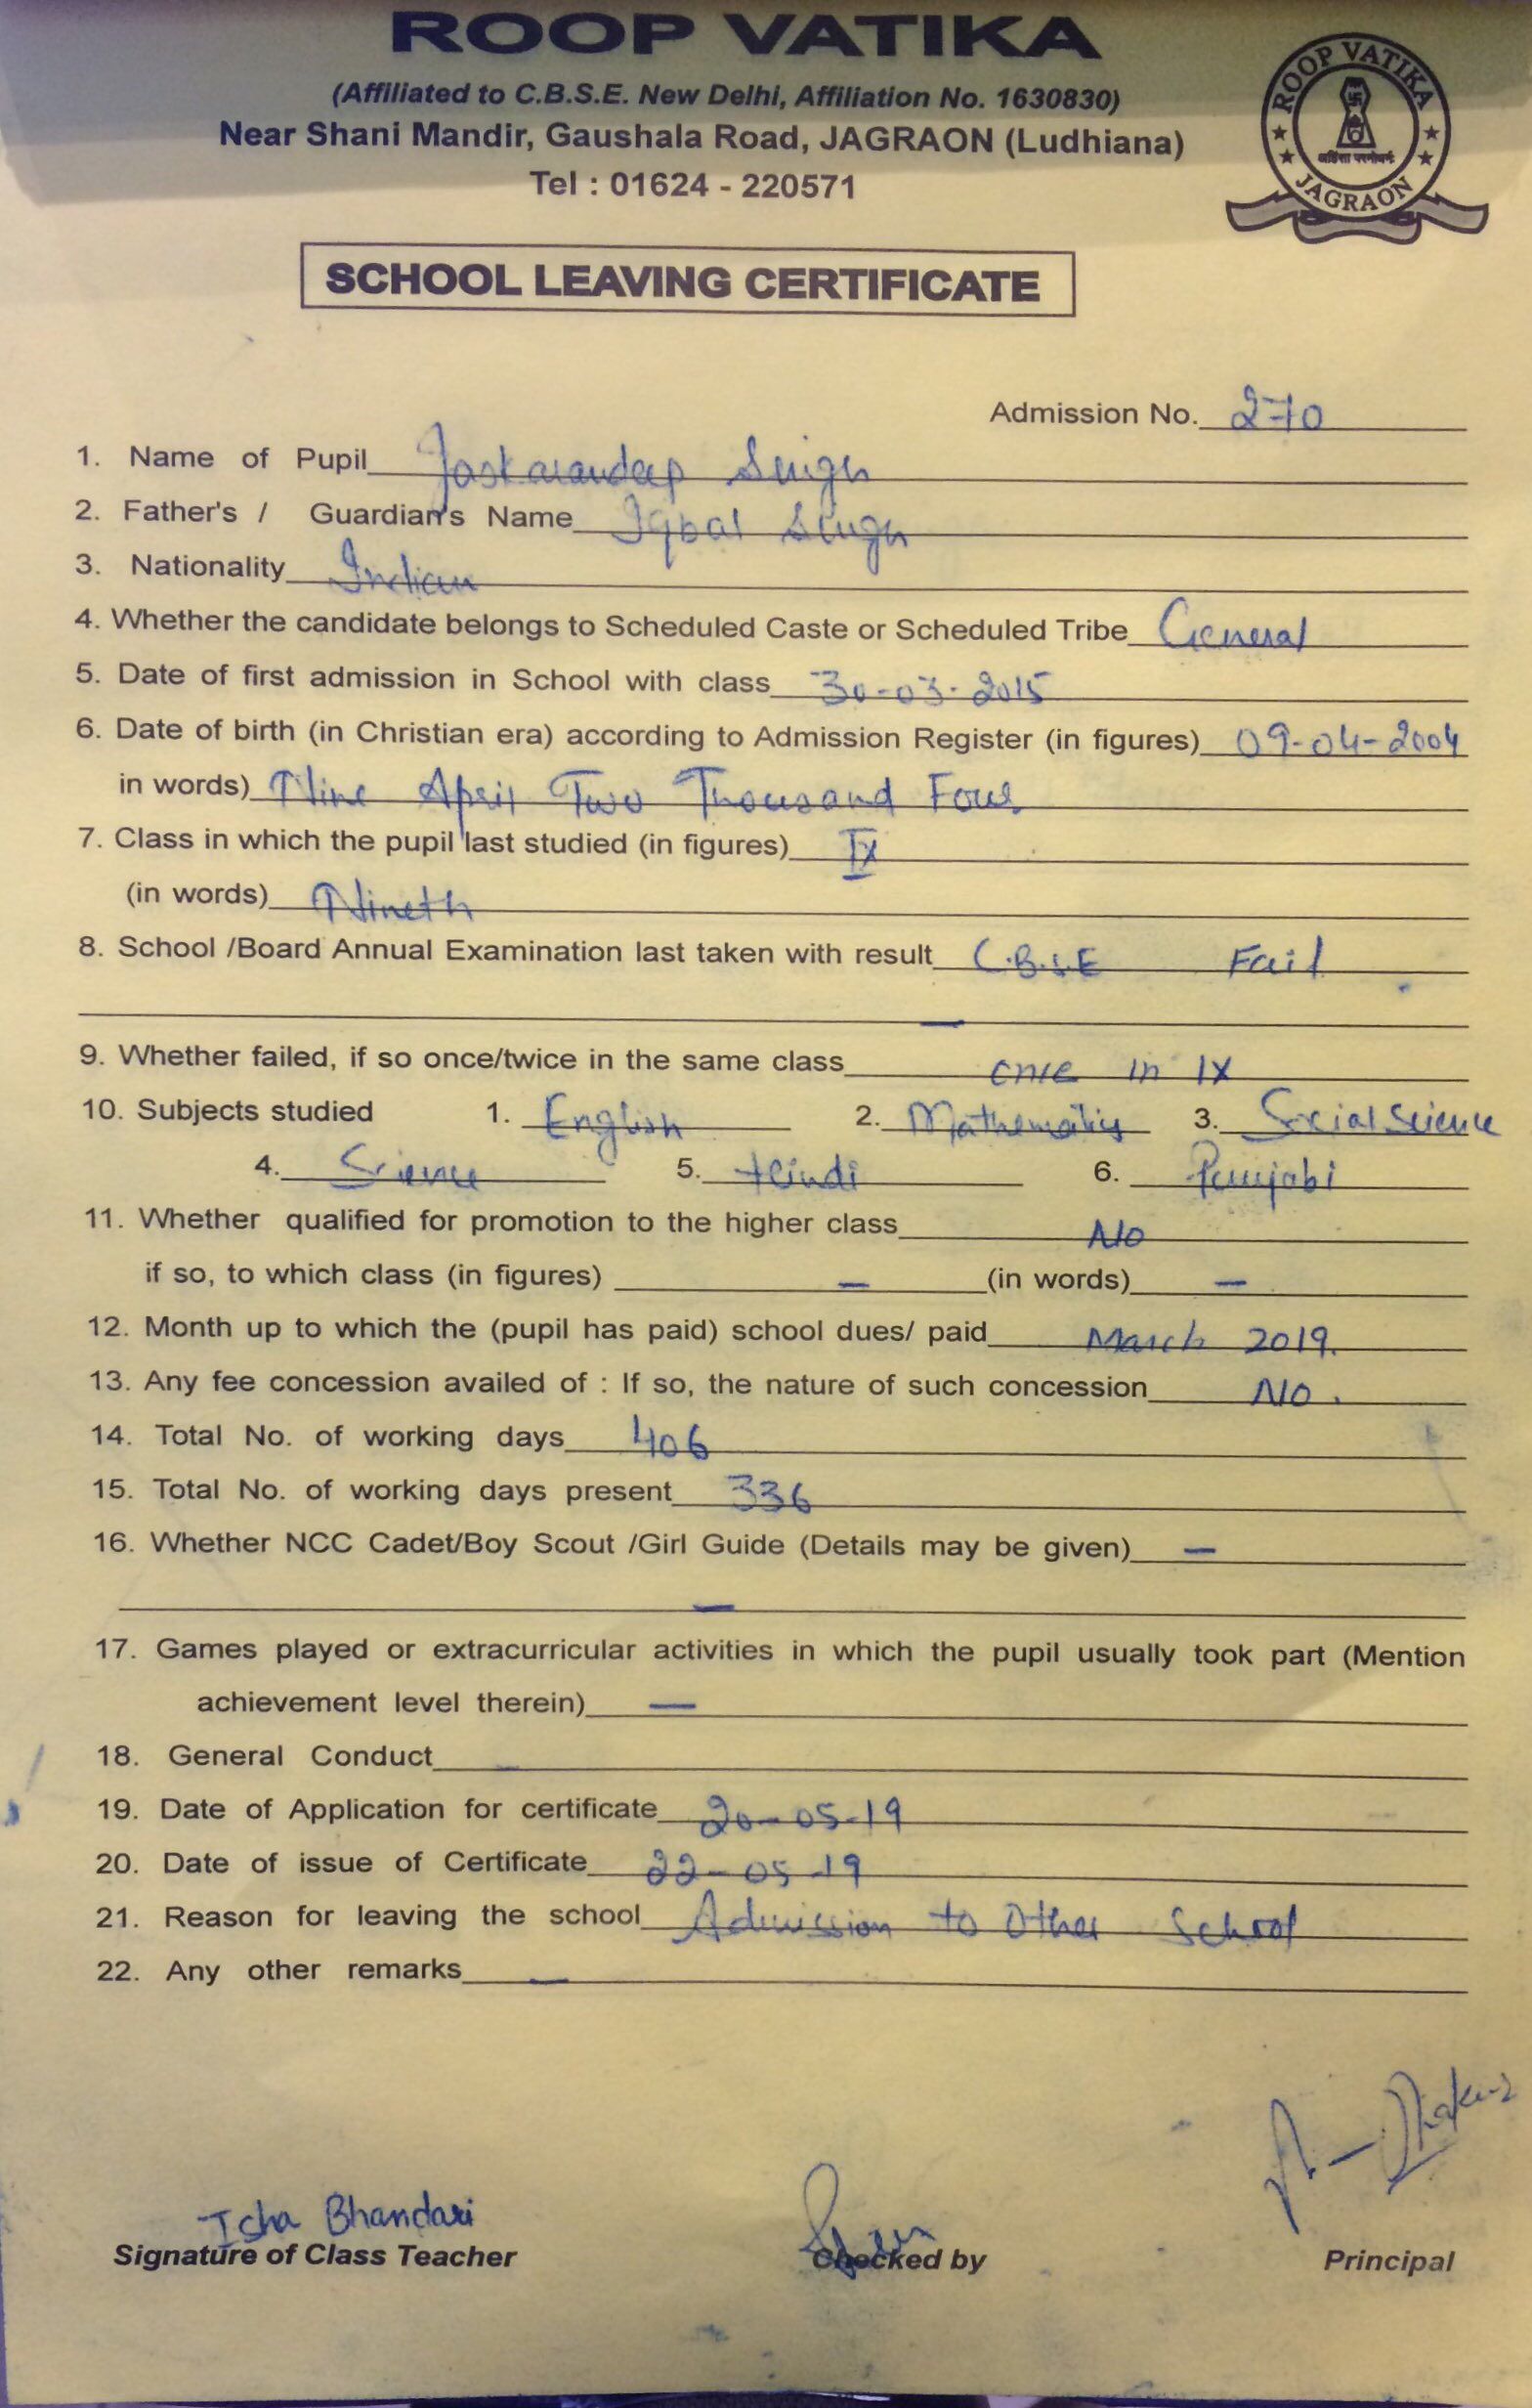 ROOP VATIKA
(Affiliated to C.B.S.E. New Delhi, Affiliation No. 1630830)
Near Shani Mandir, Gaushala Road, JAGRAON (Ludhiana)
Tel : 01624 - 220571
ROOP VATIKA
अहिंसा परमोधर्म
JAGRAON
SCHOOL LEAVING CERTIFICATE
Admission No. 270
1. Name of Pupil Jaskarandeep Singh
2. Father's / Guardian's Name Iqbal Singh
3. Nationality Indian
4. Whether the candidate belongs to Scheduled Caste or Scheduled Tribe General
5. Date of first admission in School with class 30-03-2015
6. Date of birth (in Christian era) according to Admission Register (in figures) 09-04-2004
in words) Nine April Two Thousand Four
7. Class in which the pupil last studied (in figures) IX
(in words) Nineth
8. School /Board Annual Examination last taken with result C.B.S.E Fail
—
9. Whether failed, if so once/twice in the same class once in IX
10. Subjects studied 1. English 2. Mathematics 3. Social Science
4. Science 5. Hindi 6. Punjabi
11. Whether qualified for promotion to the higher class No
if so, to which class (in figures) — (in words) —
12. Month up to which the (pupil has paid) school dues/ paid March 2019.
13. Any fee concession availed of : If so, the nature of such concession No.
14. Total No. of working days 406
15. Total No. of working days present 336
16. Whether NCC Cadet/Boy Scout /Girl Guide (Details may be given) —
—
17. Games played or extracurricular activities in which the pupil usually took part (Mention
achievement level therein) —
18. General Conduct —
19. Date of Application for certificate 20-05-19
20. Date of issue of Certificate 22-05-19
21. Reason for leaving the school Admission to Other School
22. Any other remarks —
Isha Bhandari
Signature of Class Teacher Checked by Principal